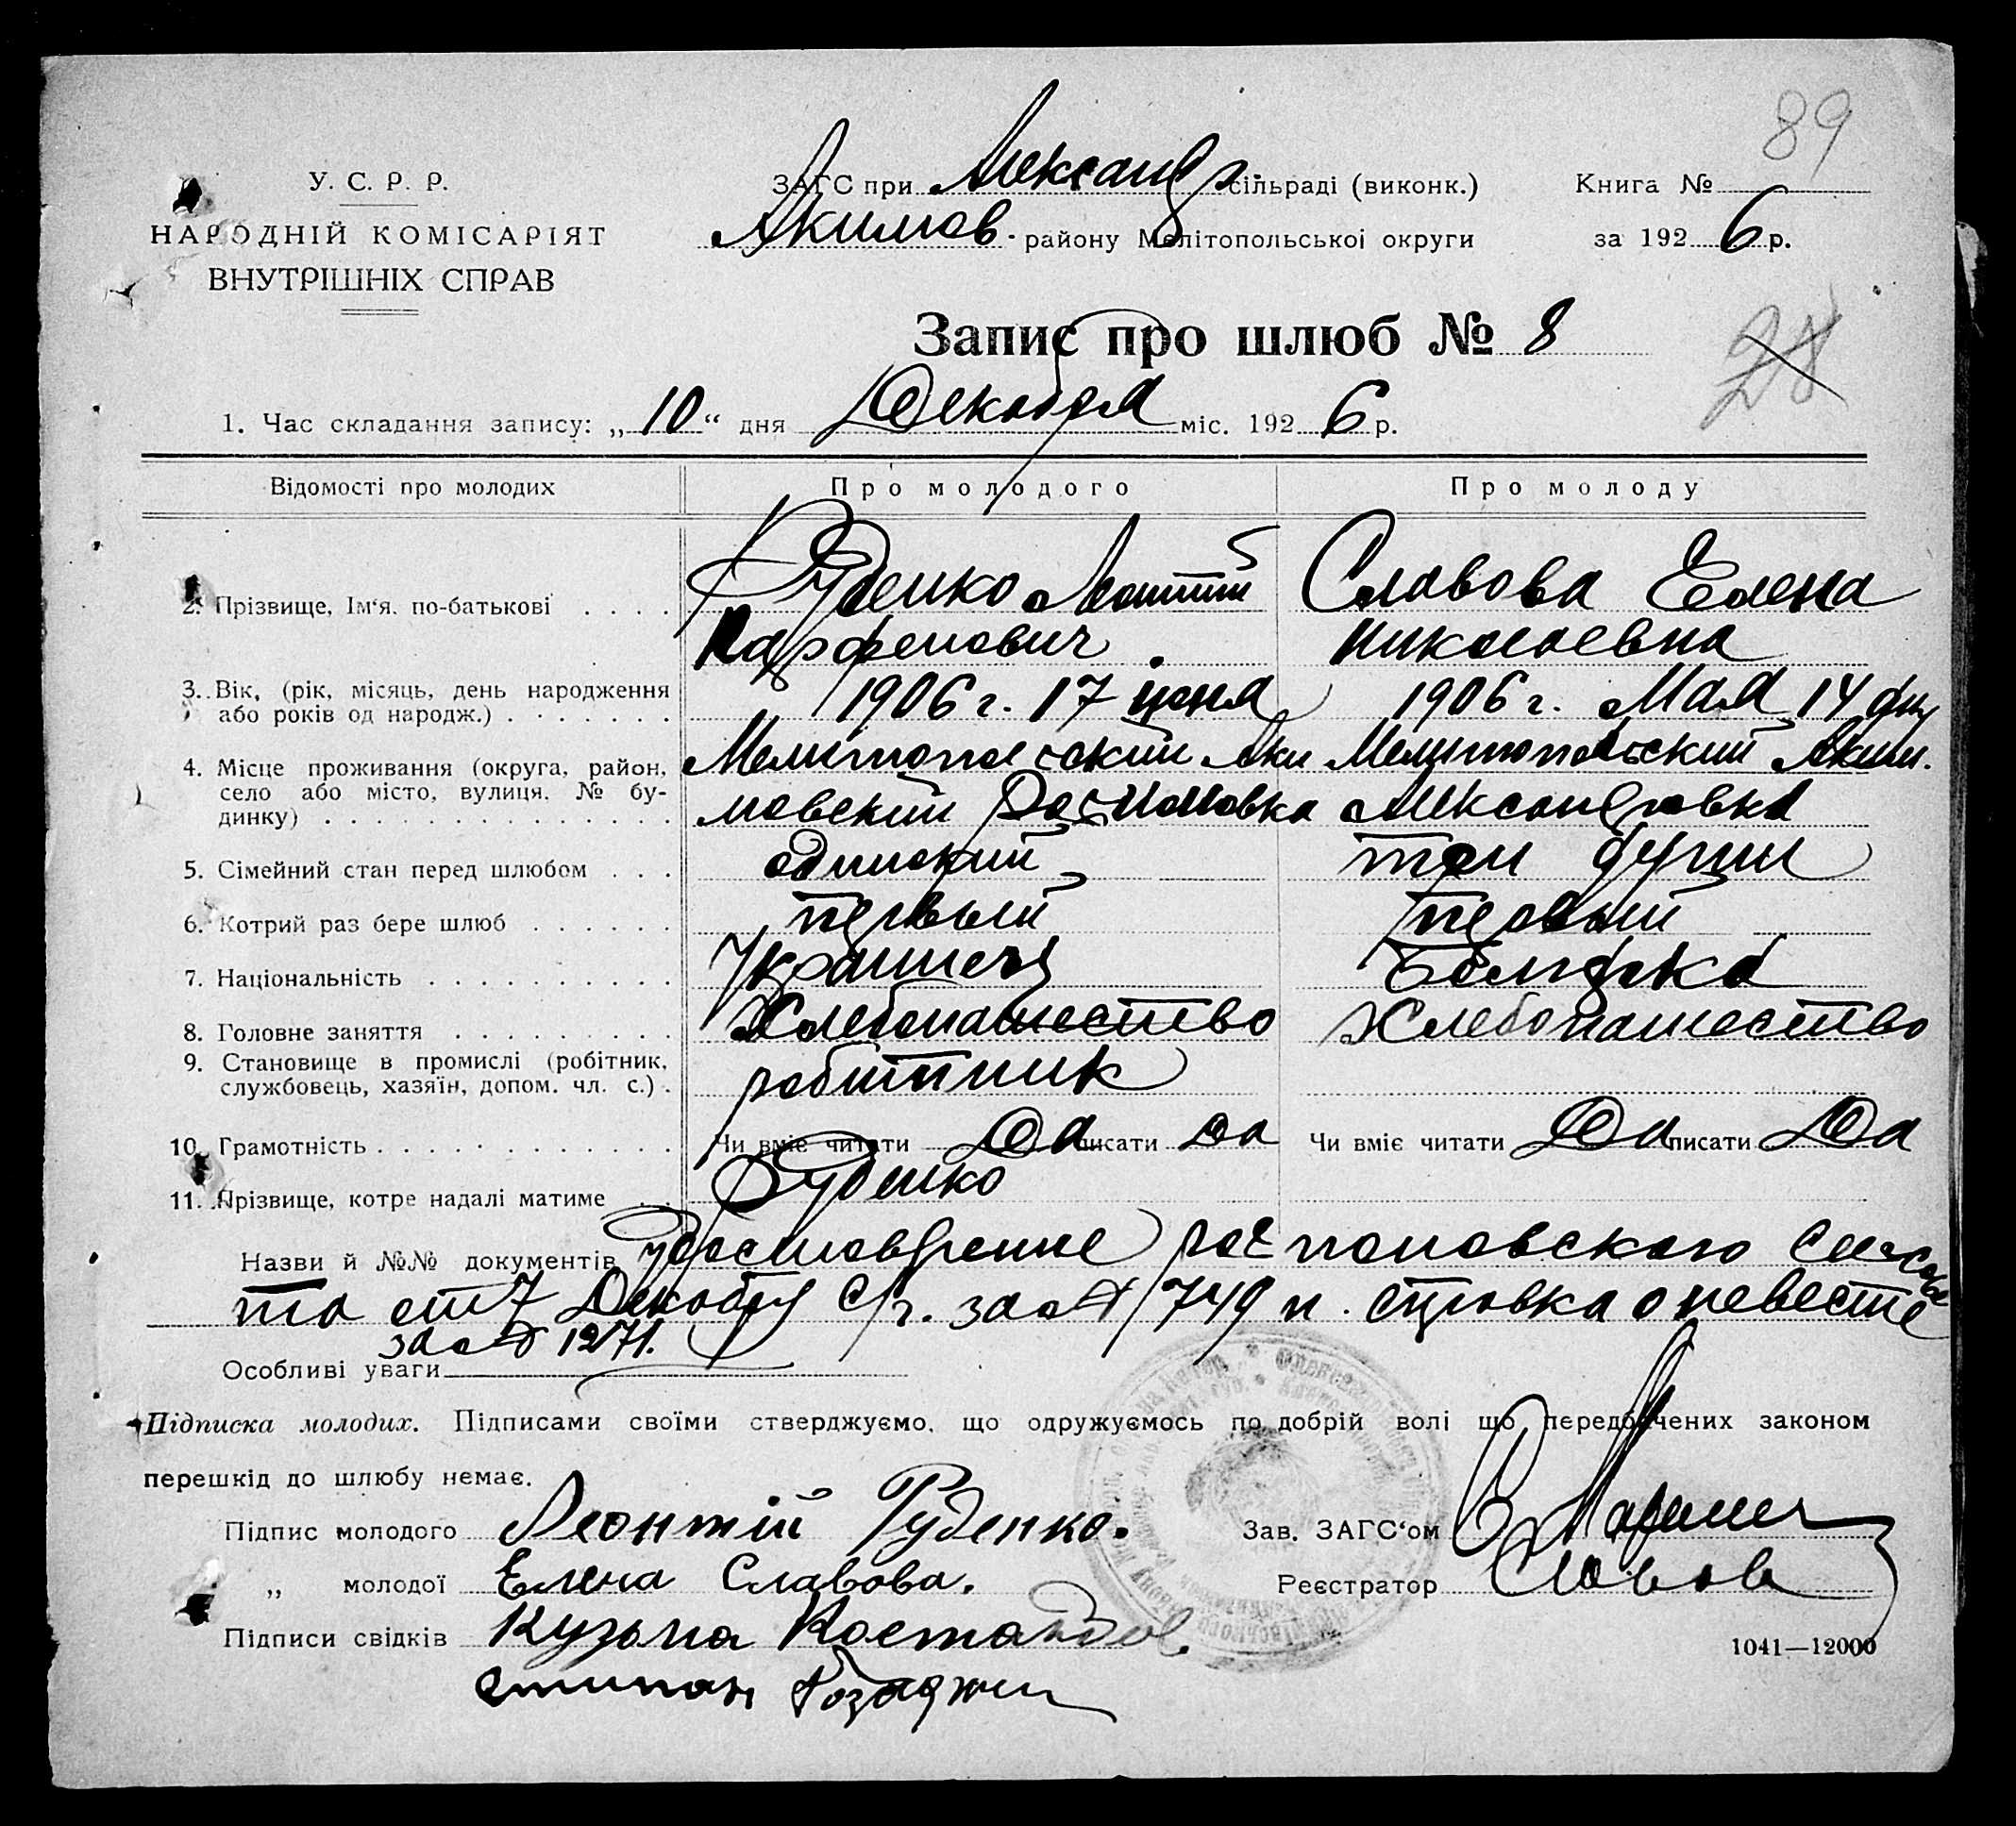 89
У. С. Р. Р.
НАРОДНІЙ КОМІСАРІЯТ
ВНУТРІШНІХ СПРАВ
ЗАГС при Александр. сільраді (виконк.) Книга №
Акимов. району Мелітопольської округи за 1926 р.
Запис про шлюб № 8
28
1. Час складання запису: „10“ дня Декабря міс. 1926 р.
Відомості про молодих Про молодого Про молоду
2. Прізвище, Ім‘я, по-батькові . . . . Руденко Леонтий Славова Елена
Парфенович Николаевна
3. Вік, (рік, місяць, день народження 1906 г. 17 июня 1906 г. Мая 14 дня
або років од народж.) . . . . . . .
4. Місце проживання (округа, район, Мелитопольский Аки Мелитопольский Аким.
село або місто, вулиця, № бу-
динку) . . . . . . . . . . . . . . мовский Александровка
5. Сімейний стан перед шлюбом . . . одинокий три души
6. Котрий раз бере шлюб . . . . . . первый первый
7. Національність . . . . . . . . . . Украинец Болгарка
8. Головне заняття . . . . . . . . . Хлебопашество Хлебопашество
9. Становище в промислі (робітник, робітник
службовець, хазяїн, допом. чл. с.) .
10. Грамотність . . . . . . . . . . . Чи вміє читати Да писати да Чи вміє читати Да писати Да
11. Прізвище, котре надалі матиме . . Руденко
Назви й №№ документів Удостоверение
та от 7 Декабря с/г. за № 1749 и справка о невесте
за № 1271.
Особливі уваги
Підписка молодих. Підписами своїми стверджуємо, що одружуємось по добрій волі що передбачених законом
перешкід до шлюбу немає.
Підпис молодого Леонтій Руденко. Зав. ЗАГС‘ом
„ молодої Елена Славова. Реєстратор
Підписи свідків Кузьма Костандов 1041—12000